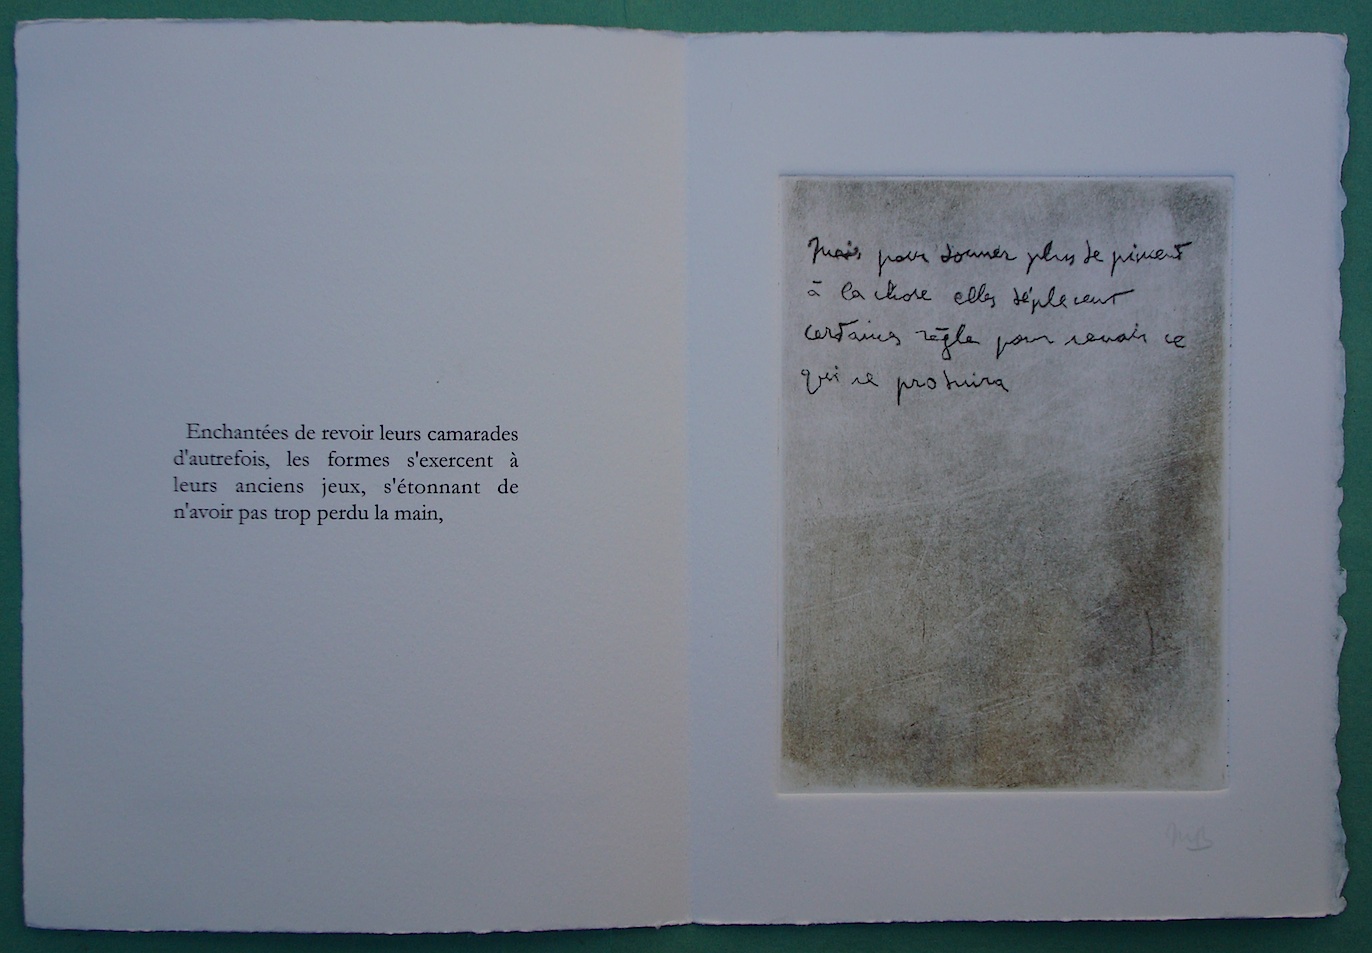 Enchantées de revoir leurs camarades
d'autrefois, les formes s'exercent à
leurs anciens jeux, s'étonnant de
n'avoir pas trop perdu la main,
Mais pour donner plus de piment
à la chose elles déplacent
certaines règles pour savoir ce
qui se produira
MB